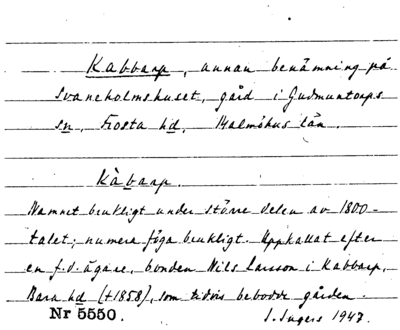 Kabbarp, annan benämning på
Svaneholmshuset, gård i Gudmuntorps
sn, Frosta hd, Malmöhus län.
Kàbarp.
Namnet brukligt under större delen av 1800-
talet; numera föga brukligt. Uppkallat efter
en f.d. ägare, bonden Nils Larsson i Kabbarp,
Bara hd (†1858), som tidvis bebodde gården.
Nr 5550. I. Ingers 1947.